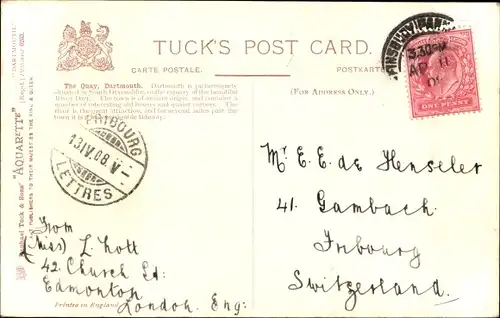 TUCK'S POST CARD.
CARTE POSTALE.
POSTKARTE
(FOR ADDRESS ONLY.)
The Quay, Dartmouth. Dartmouth is picturesquely
situated in South Devonshire, on the estuary of the beautiful
River Dart. The town is of ancient origin, and contains a
number of interesting old houses and quaint corners. The
river is the great attraction, and for several miles past the
town it is a navigable tideway.
"DARTMOUTH."
Raphael Tuck & Sons' "AQUARETTE"
ART PUBLISHERS TO THEIR MAJESTIES THE KING & QUEEN
5.30PM
AP 11
08
ONE PENNY
FRIBOURG
13.IV.08.V
LETTRES
Mr E. E. de Henseler
41. Gambach.
Fribourg
Switzerland.
From
(Miss) L. Nott
42. Church Rd:
Edmonton
London. Eng:
Printed in England.